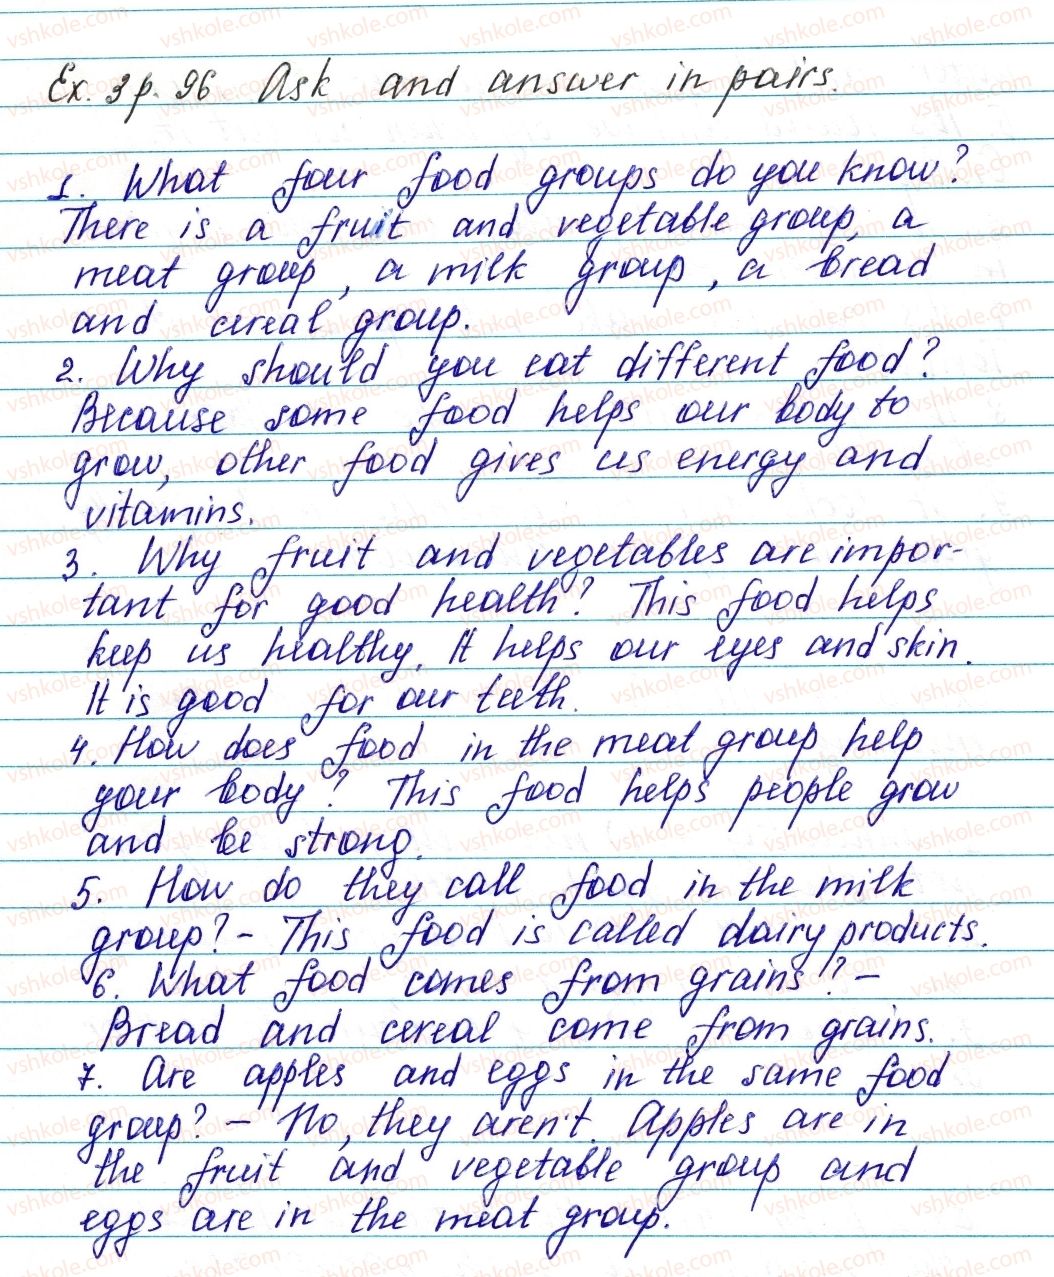 Ex. 3 p. 96 Ask and answer in pairs.
1. What four food groups do you know?
There is a fruit and vegetable group, a
meat group, a milk group, a bread
and cereal group.
2. Why should you eat different food?
Because some food helps our body to
grow, other food gives us energy and
vitamins.
3. Why fruit and vegetables are impor-
tant for good health? This food helps
keep us healthy. It helps our eyes and skin.
It is good for our teeth.
4. How does food in the meat group help
your body? This food helps people grow
and be strong.
5. How do they call food in the milk
group? - This food is called dairy products.
6. What food comes from grains? -
Bread and cereal come from grains.
7. Are apples and eggs in the same food
group? - No, they aren't. Apples are in
the fruit and vegetable group and
eggs are in the meat group.
vshkole.com